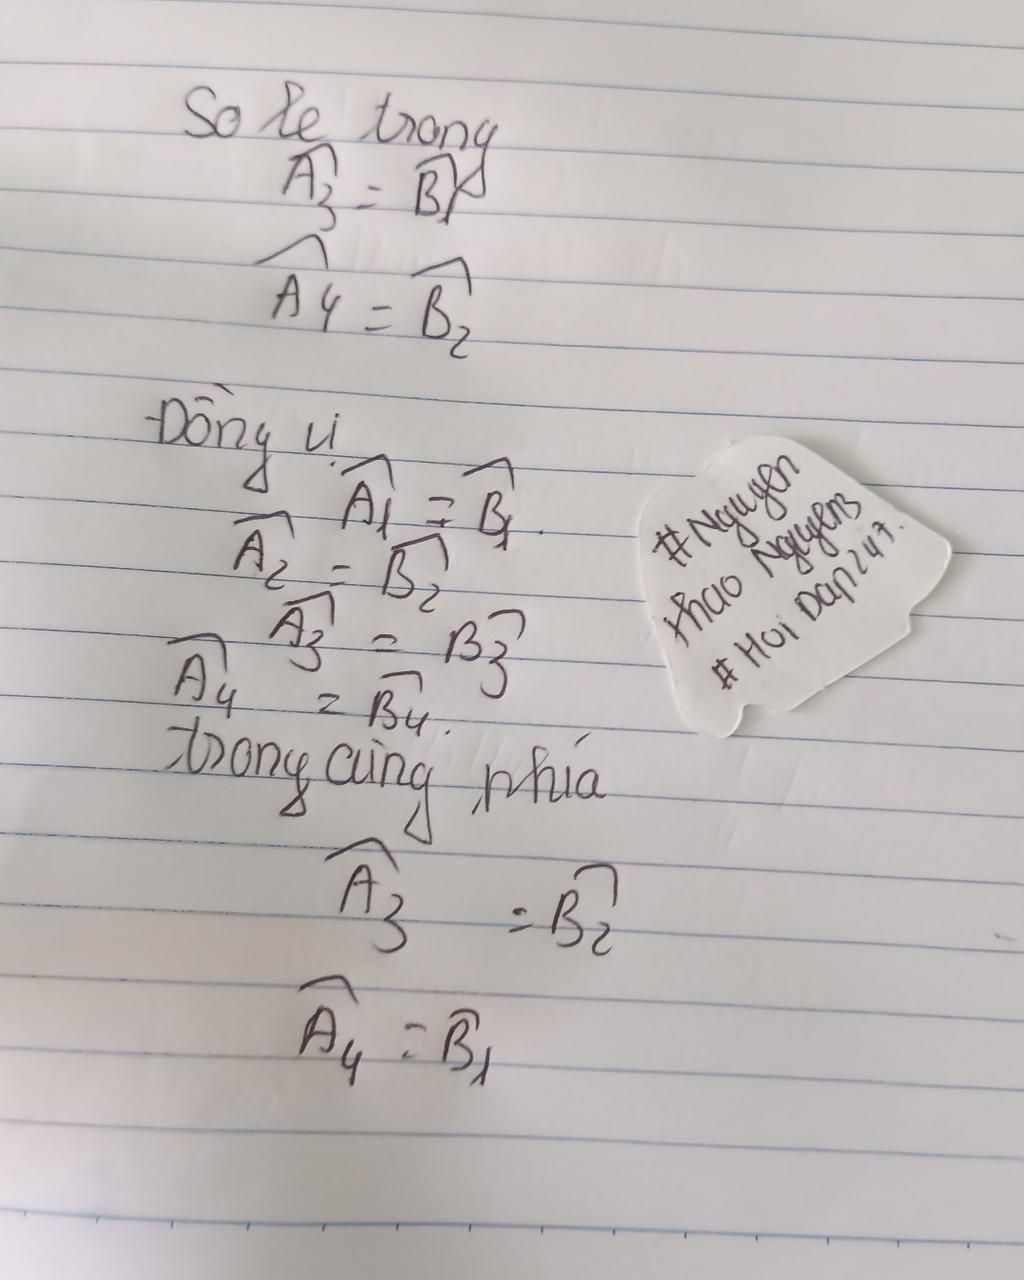 So le trong
A3 = B1
A4 = B2
Đồng vị
A1 = B1.
A2 = B2
A3 = B3
A4 = B4.
trong cùng phía
A3 = B2
A4 = B1
# Nguyen
thao Nguyen3
# Hoi Dap247.